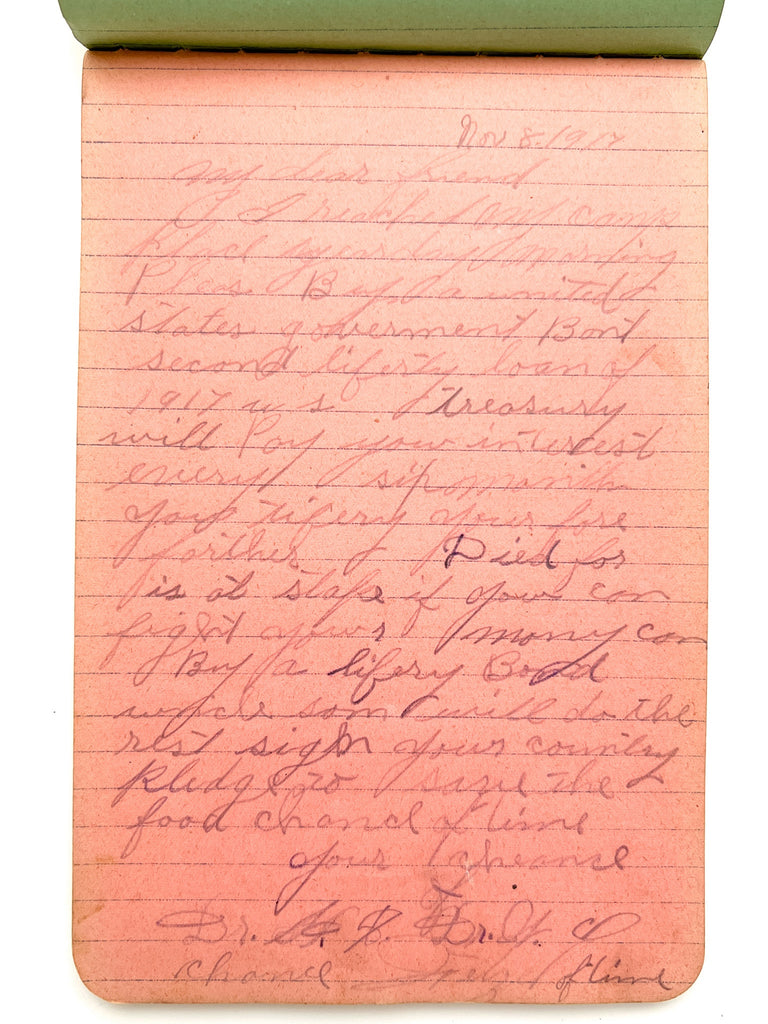 Nov 8.1917
my dear friend
I reached my camp
place morning
Pleas Buy a united
states goverment Bont
second liferty loan of
1917 u s treasury
will Pay your interest
every six month
your liferty your fore
farther Died for
is at stake if your can
fight your mony can
Buy a lifery Bond
uncle som will do the
rest sign your country
Pledge to save the
food chance
your cheance
Dr. Dr.
chance